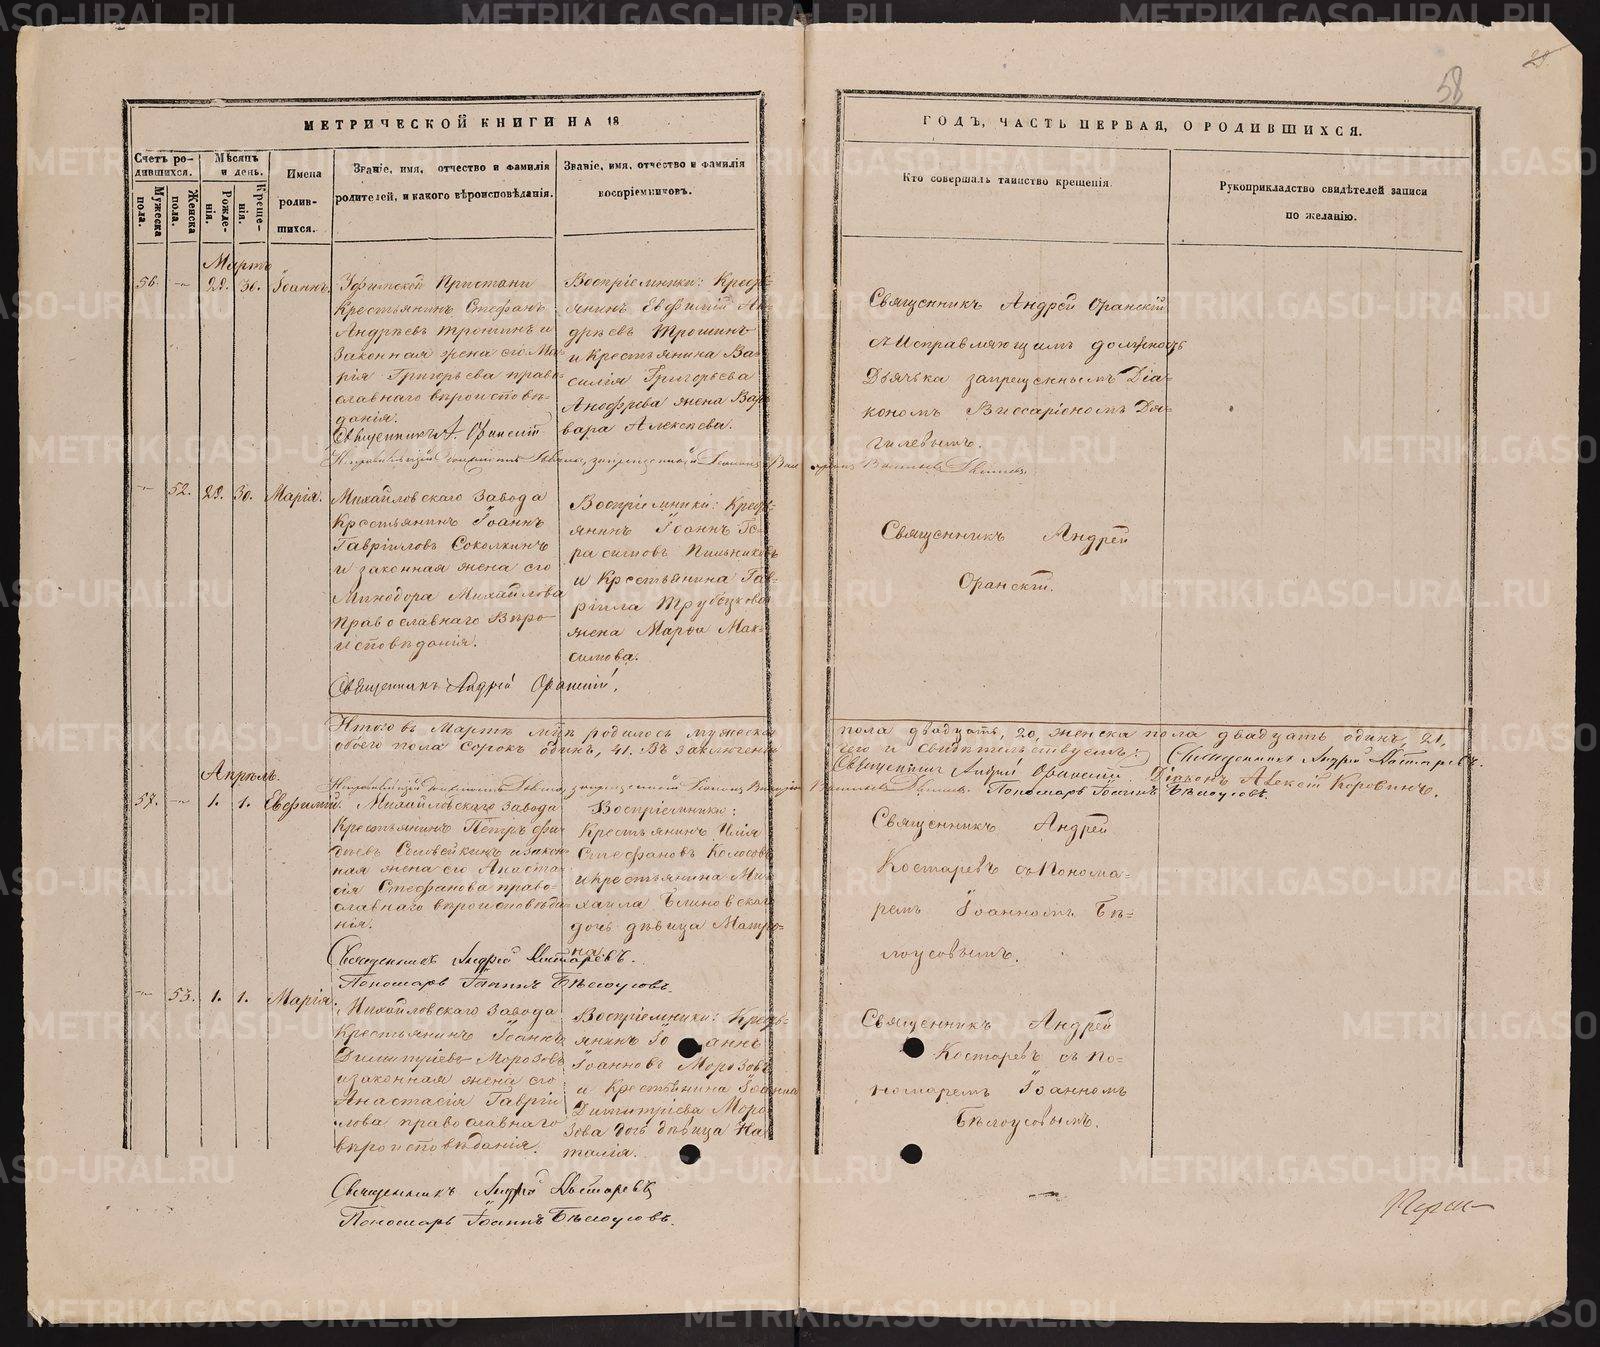 58
МЕТРИЧЕСКОЙ КНИГИ НА 18
ГОДЪ, ЧАСТЬ ПЕРВАЯ, О РОДИВШИХСЯ.
Счетъ ро-
дившихся.
Мужеска
пола.
Женска
пола.
Мѣсяцъ
и день.
Рожде-
нія.
Креще-
нія.
Имена
родив-
шихся.
Званіе, имя, отчество и фамилія
родителей, и какого вѣроисповѣданія.
Званіе, имя, отчество и фамилія
воспріемниковъ.
Кто совершалъ таинство крещенія.
Рукоприкладство свидѣтелей записи
по желанію.
Мартъ
56. — 29. 30. Іоаннъ.
Уфимской Пристани
Крестьянинъ Стефанъ
Андрѣевъ Трошинъ и
законная жена его Ма-
рія Григорьева право-
славнаго вѣроисповѣ-
данія.
Священникъ А. Оранскій
Воспріемники: Кресть-
янинъ Евфимій Ан-
дрѣевъ Трошинъ
и Крестьянина Ва-
силія Григорьева
жена Вар-
вара Алексѣева.
Священникъ Андрей Оранскій
съ Исправляющимъ должность
Дьячька запрещеннымъ Діа-
кономъ Виссаріономъ Дя-
гилевымъ.
— 52. 29. 30. Марія.
Михайловскаго Завода
Крестьянинъ Іоаннъ
Гавріиловъ Соколкинъ
и законная жена его
Минодора Михайлова
Православнаго Вѣро-
исповѣданія.
Священникъ Андрей Оранскій.
Воспріемники: Кресть-
янинъ Іоаннъ Ге-
расимовъ Пильниковъ
и Крестьянина Гав-
ріила Трубецкова
жена Марѳа Мак-
симова.
Священникъ Андрей
Оранскій.
Итого въ Мартѣ м-цѣ родилось мужеска пола двадцать, 20, женска пола двадцать одинъ, 21,
обоего пола Сорокъ одинъ, 41. Въ заключеніи сего и свидѣтельствуемъ: Священникъ Андрей Костаревъ.
Священникъ Андрей Оранскій. Діаконъ Алексѣй Коровинъ.
Пономарь Іоаннъ Бѣлоусовъ.
Апрѣль.
57. — 1. 1. Евфимій.
Михайловскаго Завода
Крестьянинъ Петръ
и закон-
ная жена его Анаста-
сія Стефанова право-
славнаго вѣроисповѣда-
нія.
Священникъ Андрей Костаревъ.
Пономарь Іоаннъ Бѣлоусовъ.
Воспріемники:
Крестьянинъ Илія
Стефановъ Колосовъ
и крестьянина Ми-
хаила Блиновскаго
дочь дѣвица Матро-
на.
Священникъ Андрей
Костаревъ съ Понома-
ремъ Іоанномъ Бѣ-
лоусовымъ.
— 53. 1. 1. Марія.
Михайловскаго Завода
Крестьянинъ Іоаннъ
Димитріевъ Морозовъ
и законная жена его
Анастасія Гавріи-
лова православнаго
вѣроисповѣданія.
Священникъ Андрей Костаревъ
Пономарь Іоаннъ Бѣлоусовъ.
Воспріемники: Кресть-
янинъ Іоаннъ
Іоанновъ Морозовъ
и Крестьянина Іоанна
Димитріева Моро-
зова дочь дѣвица На-
талія.
Священникъ Андрей
Костаревъ съ По-
номаремъ Іоанномъ
Бѣлоусовымъ.
METRIKI.GASO-URAL.RU